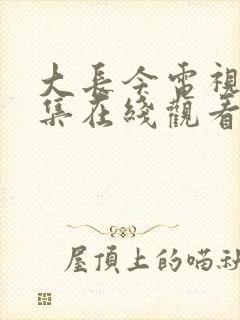 大長今電視
集在綫觀看
屋頂上的喵社